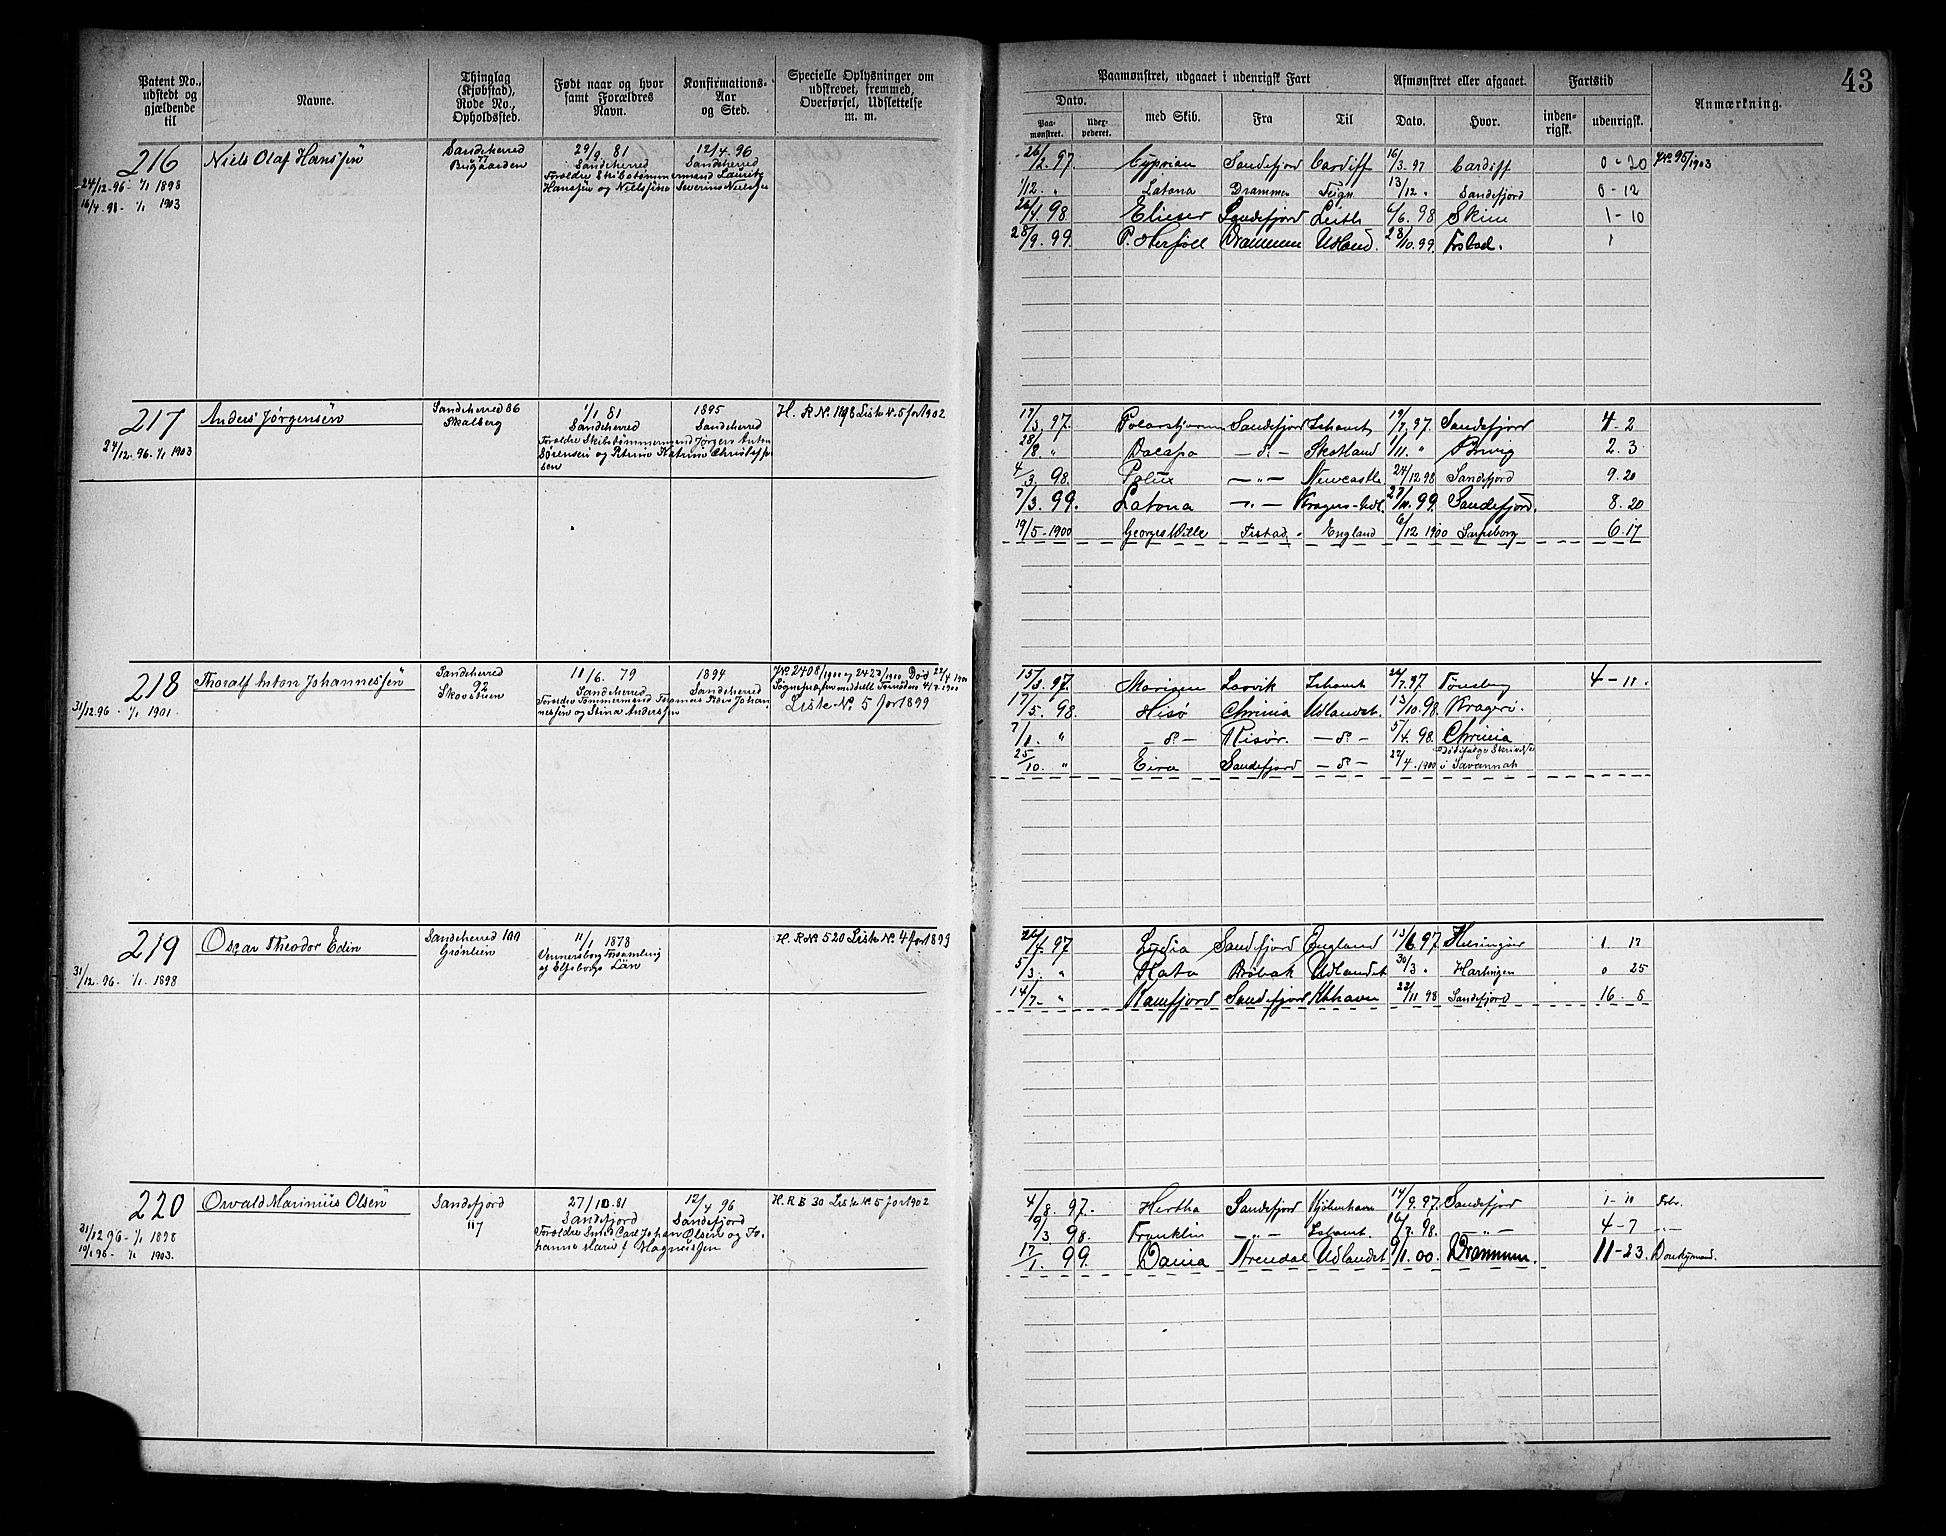 Patent No., udstedt og gjældende til
Navne.
Thinglag (Kjøbstad), Rode No., Opholdssted.
Født naar og hvor samt Forældres Navn.
Konfirmations-Aar og Sted.
Specielle Oplysninger om udskrevet, fremmed, Overførsel, Udslettelse m. m.
Paamønstret, udgaaet i udenrigsk Fart
Afmønstret eller afgaaet.
Fartstid
43
Dato.
Paamønstret.
med Skib.
Fra
Til
Dato.
Hvor.
indenrigsk.
udenrigsk.
Anmærkning.
216
24/12. 96 - 1/1 1898
16/4. 98 - 1/1 1903
Niels Olaf Hanssen
Sandeherred
77
Bugaarden
29/9. 81
Sandeherred
Forældre Skibstømmermand Lauritz
Hanssen og Nielssine Severine Nielsen
12/4. 96
Sandeherred
26/2. 97. Cyprian Sandefjord Cardiff 16/3. 97 Cardiff 0 - 20
1/12. " Latona Drammen 13/12 " Sandefjord 0 - 12
26/4. 98. Elieser Sandefjord Leith 6/6. 98 Skien 1 - 10
28/9. 99. Drammen Udland. 28/10. 99.
217
24/12. 96. 1/1 1903
Anders Jørgensen
Sandeherred 86
Skalberg
1/1 81
Sandeherred
Forældre Skibstømmermand Jørgen Anton
Sørensen og Petrine Katrine Christoffersen
1895
Sandeherred
H. R. N. 1198 Liste N. 5 for 1902
17/3. 97. Polarstjernen Sandefjord Ishavet 19/7. 97. Sandefjord 4 - 2
28/8 " Dacapo - d. - Skotland 1/11. " 2. 3
4/3. 98. Pollux - " - Newcastle 24/12 98 Sandefjord 9. 20
7/3. 99. Latona - " - 27/11. 99. Sandefjord. 8. 20
19/5 - 1900 Georges Wille England 6/12 1900 Sarpsborg 6. 17
218
31/12. 96 - 1/1 1901.
Thoralf Anton Johannessen
Sandeherred
92
Skovstuen
11/6. 79
Sandeherred
Forældre Tømmermand Thomas Peder Johannessen og Stina Anderssen
1894
Sandeherred
Død 22/4 1900
Liste No. 5 for 1899
15/3. 97. Larvik Ishavet 26/7. 97. Tønsberg 4 - 11.
17/5. 98. Hisø Chrinia Udlandet. 13/10. 98. Kragerø.
7/1. " - d. - Risør. - d. - 5/4. 98. Chrinia
25/10. " Eira Sandefjord - d. - 22/4. 1900 i Savannah
219
31/12. 96. - 1/1. 1898
Oscar Theodor Edin
Sandeherred 100
Grønlien
11/1 1878
Vennersborg Forsamling
af Elfsborgs Län
H. R. No. 520 Liste No. 4 for 1899
24/4. 97 Lydia Sandefjord England 13/6. 97 Helsingør 1. 17
5/3. " Drøbak Udlandet 30/3 " Harlingen 0 25
14/7 - " Ramfjord Sandefjord Kbhavn 22/11 98 Sandefjord 16 - 8
220
31/12 96 - 1/1 1898
10/1 98 - 1/1 1903.
Osvald Marinius Olsen
Sandefjord
117
27/10. 81
Sandefjord
Forældre Smed Carl Johan Olsen og Johanne Marie f. Magnussen
12/4 96
Sandefjord
H. R. B 30 Liste N. 5 for 1902
4/8. 97. - Hertha Sandefjord Kjøbenhavn 14/9. 97. Sandefjord 1 - 11
9/3. 98. Franklin - " - Ishavet. 16/7. 98. - " - 4 - 7 - " -
17/1. 99. Dania Arendal Udlandet 9/1. 00. Drammen. 11 - 23. Donkeymand.